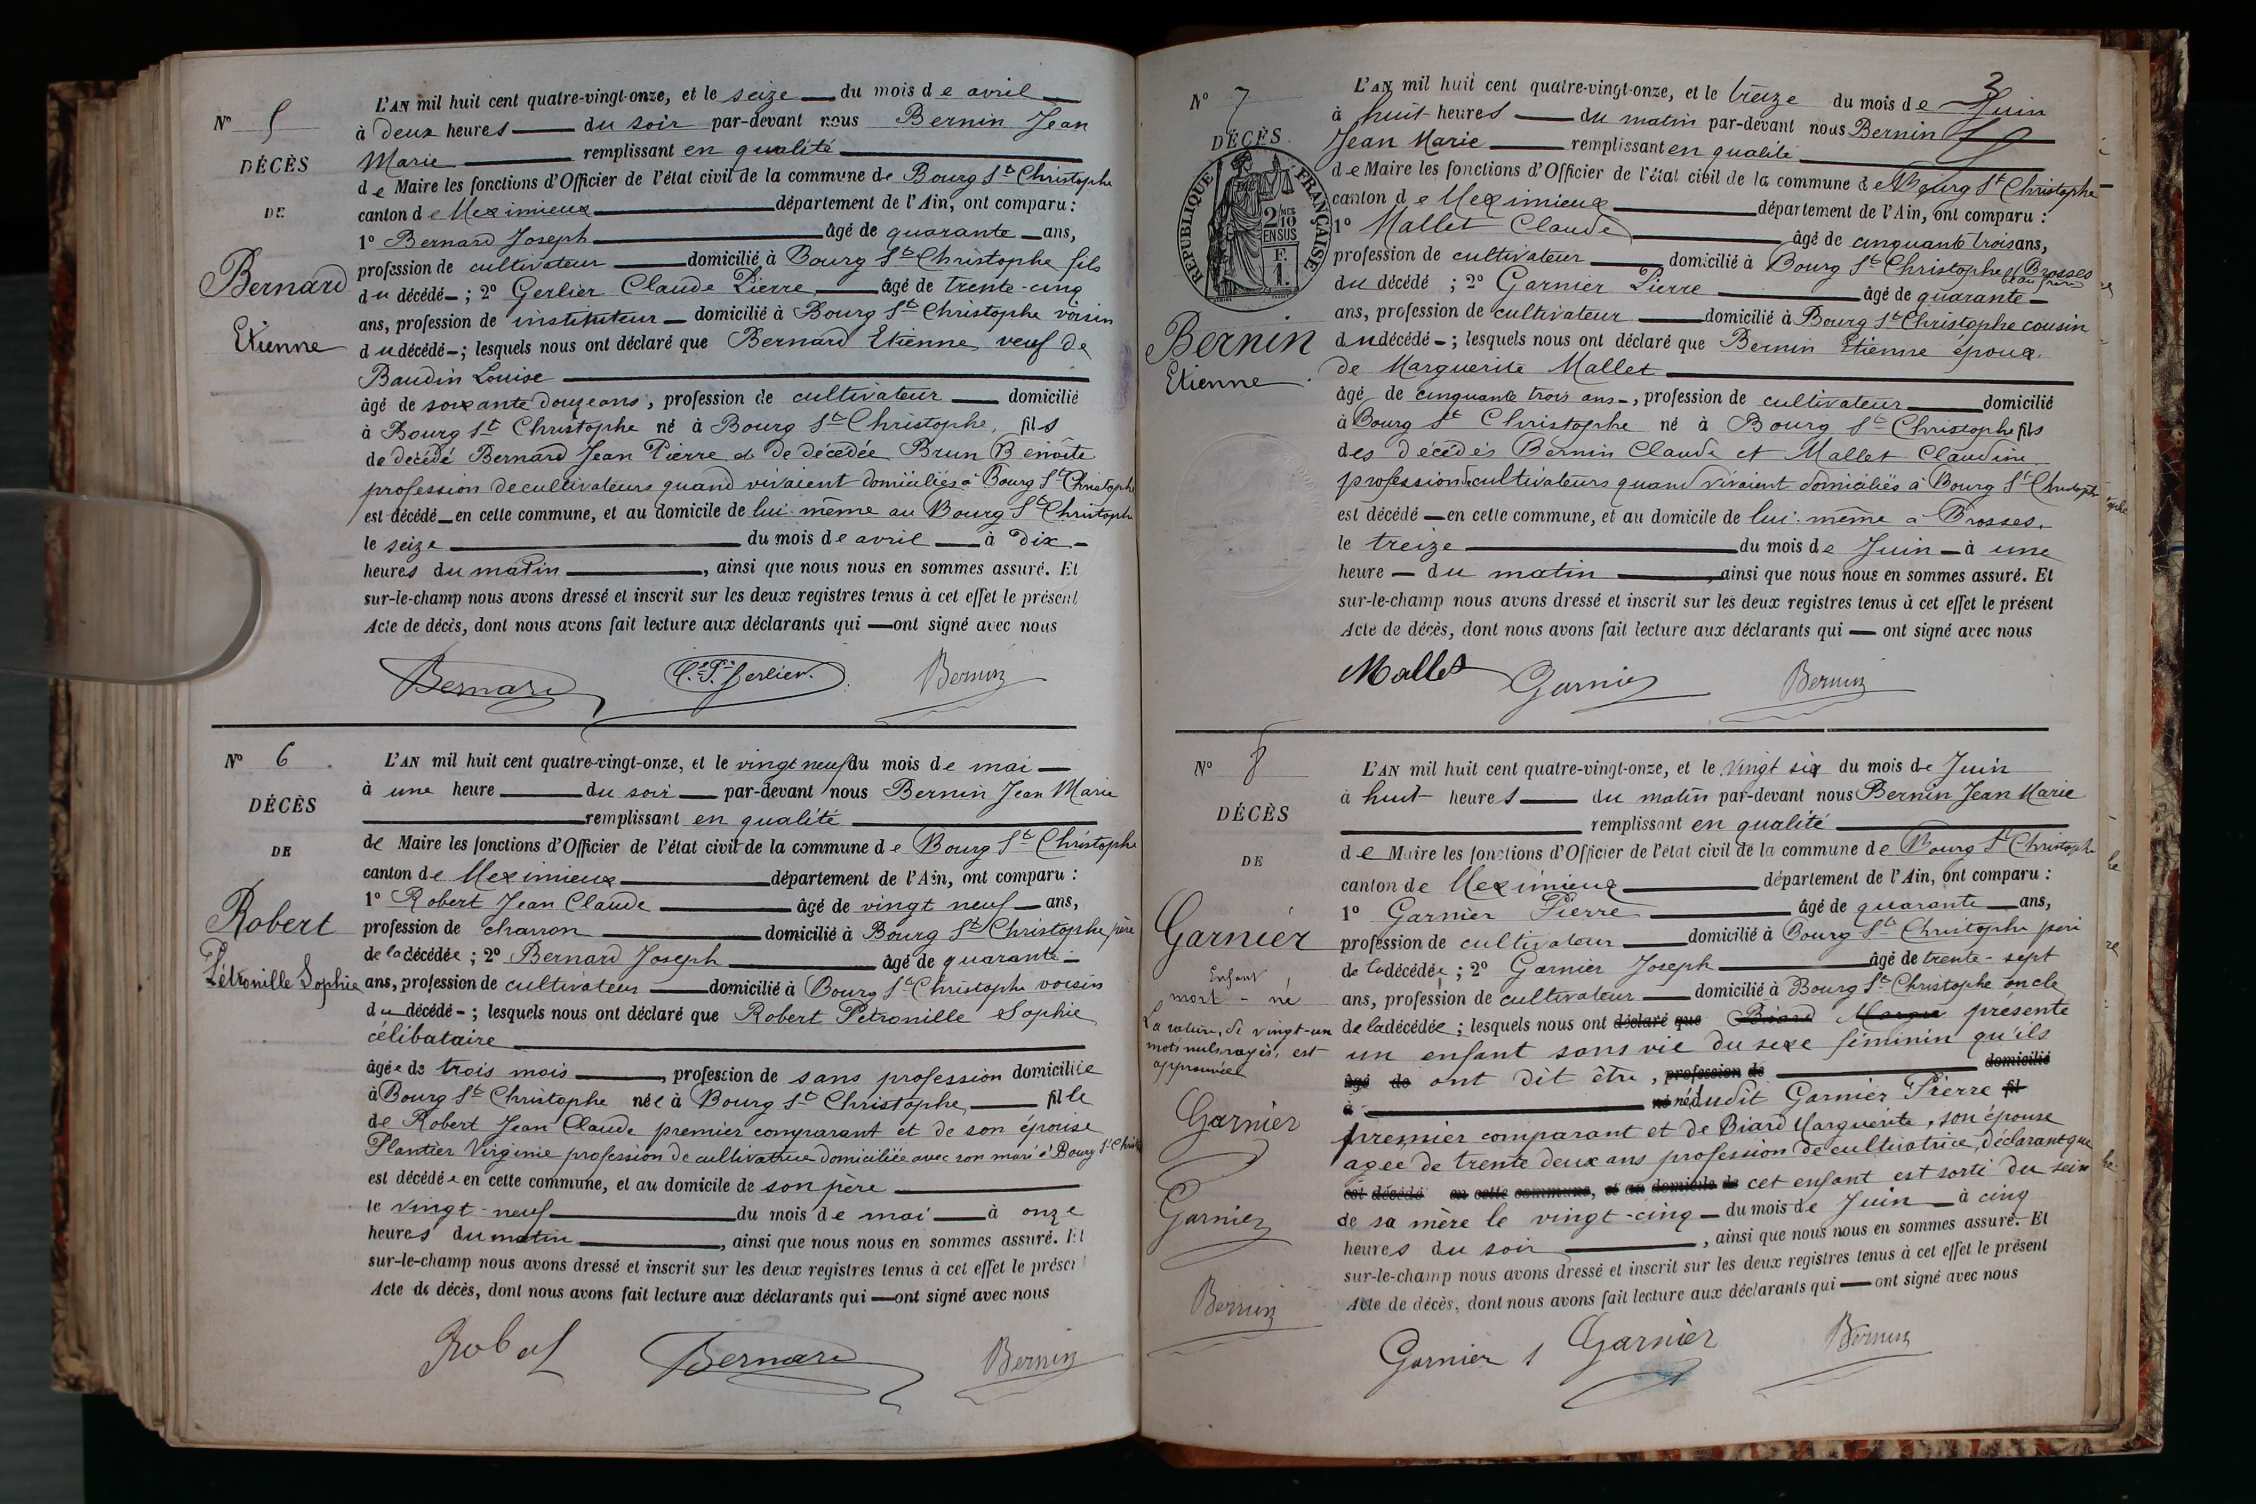 N° 5
DÉCÈS
DE
Bernard
Etienne
L'AN mil huit cent quatre-vingt-onze, et le seize du mois de avril
à deux heures du soir par-devant nous Bernin Jean
Marie remplissant en qualité
de Maire les fonctions d'Officier de l'état civil de la commune de Bourg St Christophe
canton de Meximieux département de l'Ain, ont comparu :
1° Bernard Joseph âgé de quarante ans,
profession de cultivateur domicilié à Bourg St Christophe fils
du décédé ; 2° Gerlier Claude Pierre âgé de trente-cinq
ans, profession de instituteur domicilié à Bourg St Christophe voisin
du décédé ; lesquels nous ont déclaré que Bernard Etienne veuf de
Baudin Louise
âgé de soixante douze ans, profession de cultivateur domicilié
à Bourg St Christophe né à Bourg St Christophe, fils
de décédé Bernard Jean Pierre et de décédée Brun Benoite
profession de cultivateurs quand vivaient domiciliés à Bourg St Christophe
est décédé en cette commune, et au domicile de lui-même au Bourg St Christophe
le seize du mois de avril à dix
heures du matin, ainsi que nous nous en sommes assuré. Et
sur-le-champ nous avons dressé et inscrit sur les deux registres tenus à cet effet le présent
Acte de décès, dont nous avons fait lecture aux déclarants qui ont signé avec nous
Bernard Cde Pre Gerlier Bernin
N° 6
DÉCÈS
DE
Robert
Pétronille Sophie
L'AN mil huit cent quatre-vingt-onze, et le vingt neuf du mois de mai
à une heure du soir par-devant nous Bernin Jean Marie
remplissant en qualité
de Maire les fonctions d'Officier de l'état civil de la commune de Bourg St Christophe
canton de Meximieux département de l'Ain, ont comparu :
1° Robert Jean Claude âgé de vingt neuf ans,
profession de charron domicilié à Bourg St Christophe père
de la décédée ; 2° Bernard Joseph âgé de quarante
ans, profession de cultivateur domicilié à Bourg St Christophe voisin
du décédé ; lesquels nous ont déclaré que Robert Pétronille Sophie
célibataire
âgée de trois mois, profession de sans profession domiciliée
à Bourg St Christophe née à Bourg St Christophe, fille
de Robert Jean Claude premier comparant et de son épouse
Plantier Virginie profession de cultivatrice domiciliée avec son mari à Bourg St Christ
est décédée en cette commune, et au domicile de son père
le vingt-neuf du mois de mai à onze
heures du matin, ainsi que nous nous en sommes assuré. Et
sur-le-champ nous avons dressé et inscrit sur les deux registres tenus à cet effet le présent
Acte de décès, dont nous avons fait lecture aux déclarants qui ont signé avec nous
Robert Bernard Bernin
3
N° 7
DÉCÈS
RÉPUBLIQUE FRANÇAISE
2/10 EN SUS
F. 1.
Bernin
Etienne
L'AN mil huit cent quatre-vingt-onze, et le treize du mois de Juin
à huit heures du matin par-devant nous Bernin
Jean Marie remplissant en qualité
de Maire les fonctions d'Officier de l'état civil de la commune de Bourg St Christophe
canton de Meximieux département de l'Ain, ont comparu :
1° Mallet Claude âgé de cinquante trois ans,
profession de cultivateur domicilié à Bourg St Christophe Brosses
beau frère
du décédé ; 2° Garnier Pierre âgé de quarante
ans, profession de cultivateur domicilié à Bourg St Christophe cousin
du décédé ; lesquels nous ont déclaré que Bernin Etienne époux
de Marguerite Mallet
âgé de cinquante trois ans, profession de cultivateur domicilié
à Bourg St Christophe né à Bourg St Christophe fils
des décédés Bernin Claude et Mallet Claudine
profession cultivateurs quand vivaient domiciliés à Bourg St Christophe
est décédé en cette commune, et au domicile de lui-même à Brosses.
le treize du mois de Juin à une
heure du matin, ainsi que nous nous en sommes assuré. Et
sur-le-champ nous avons dressé et inscrit sur les deux registres tenus à cet effet le présent
Acte de décès, dont nous avons fait lecture aux déclarants qui ont signé avec nous
Mallet Garnier Bernin
N° 8
DÉCÈS
DE
Garnier
Enfant
mort-né
La rature de vingt-un
mots nuls rayés, est
approuvée
Garnier
Garnier
Bernin
L'AN mil huit cent quatre-vingt-onze, et le vingt six du mois de Juin
à huit heures du matin par-devant nous Bernin Jean Marie
remplissant en qualité
de Maire les fonctions d'Officier de l'état civil de la commune de Bourg St Christophe
canton de Meximieux département de l'Ain, ont comparu :
1° Garnier Pierre âgé de quarante ans,
profession de cultivateur domicilié à Bourg St Christophe père
de la décédée ; 2° Garnier Joseph âgé de trente-sept
ans, profession de cultivateur domicilié à Bourg St Christophe oncle
de la décédée ; lesquels nous ont déclaré que Biard Margue présenté
un enfant sans vie du sexe féminin qu'ils
âgé de ont dit être, profession de domicilié
à né né dudit Garnier Pierre fil
premier comparant et de Biard Marguerite, son épouse
agée de trente deux ans profession de cultivatrice, déclarant que
est décédé en cette commune, et au domicile de cet enfant est sorti du sein
de sa mère le vingt-cinq du mois de Juin à cinq
heures du soir, ainsi que nous nous en sommes assuré. Et
sur-le-champ nous avons dressé et inscrit sur les deux registres tenus à cet effet le présent
Acte de décès, dont nous avons fait lecture aux déclarants qui ont signé avec nous
Garnier J Garnier Bernin